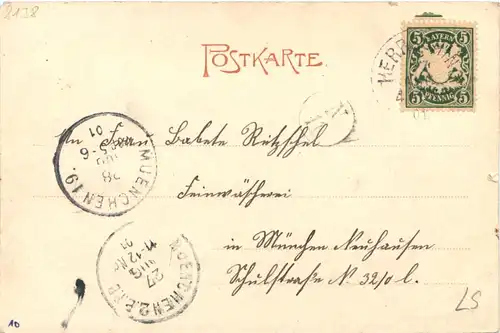 2138
POSTKARTE.
BAYERN
5 5
5 5
PFENNIG
HERR
An Frau Babete Retzschel
Feinwäscherei
in München Neuhausen
Schulstraße N 32/0 l.
MUENCHEN 19.
28
AUG
5-6
01
MUENCHEN 2.B.XP
27
AUG
11-12
01
LS
10